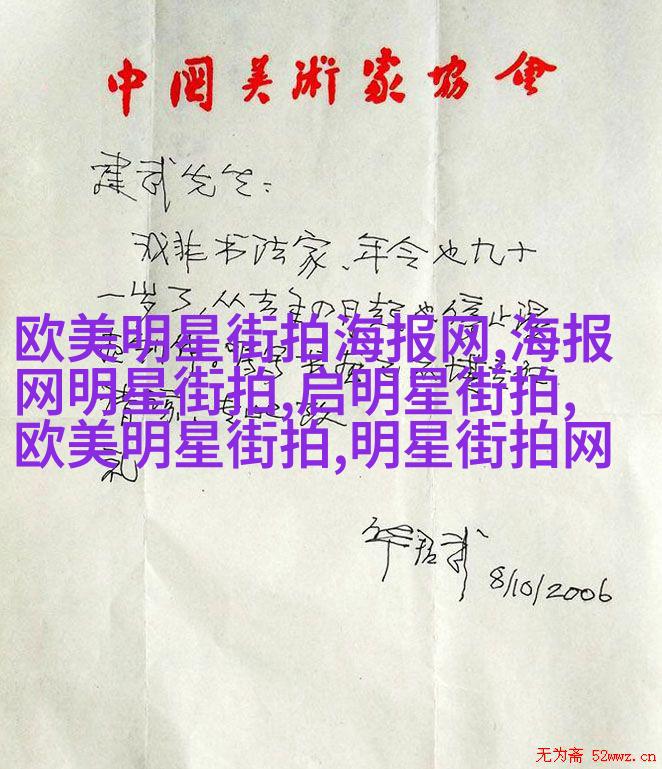 中國美術家協會
建武先生:
我非书法家、年令也九十
一岁了,从去年
欧美明星街拍海报网,海报
网明星街拍,启明星街拍,
欧美明星街拍,明星街拍网
礼
华君武
8/10/2006
无为斋 52wwz.cn